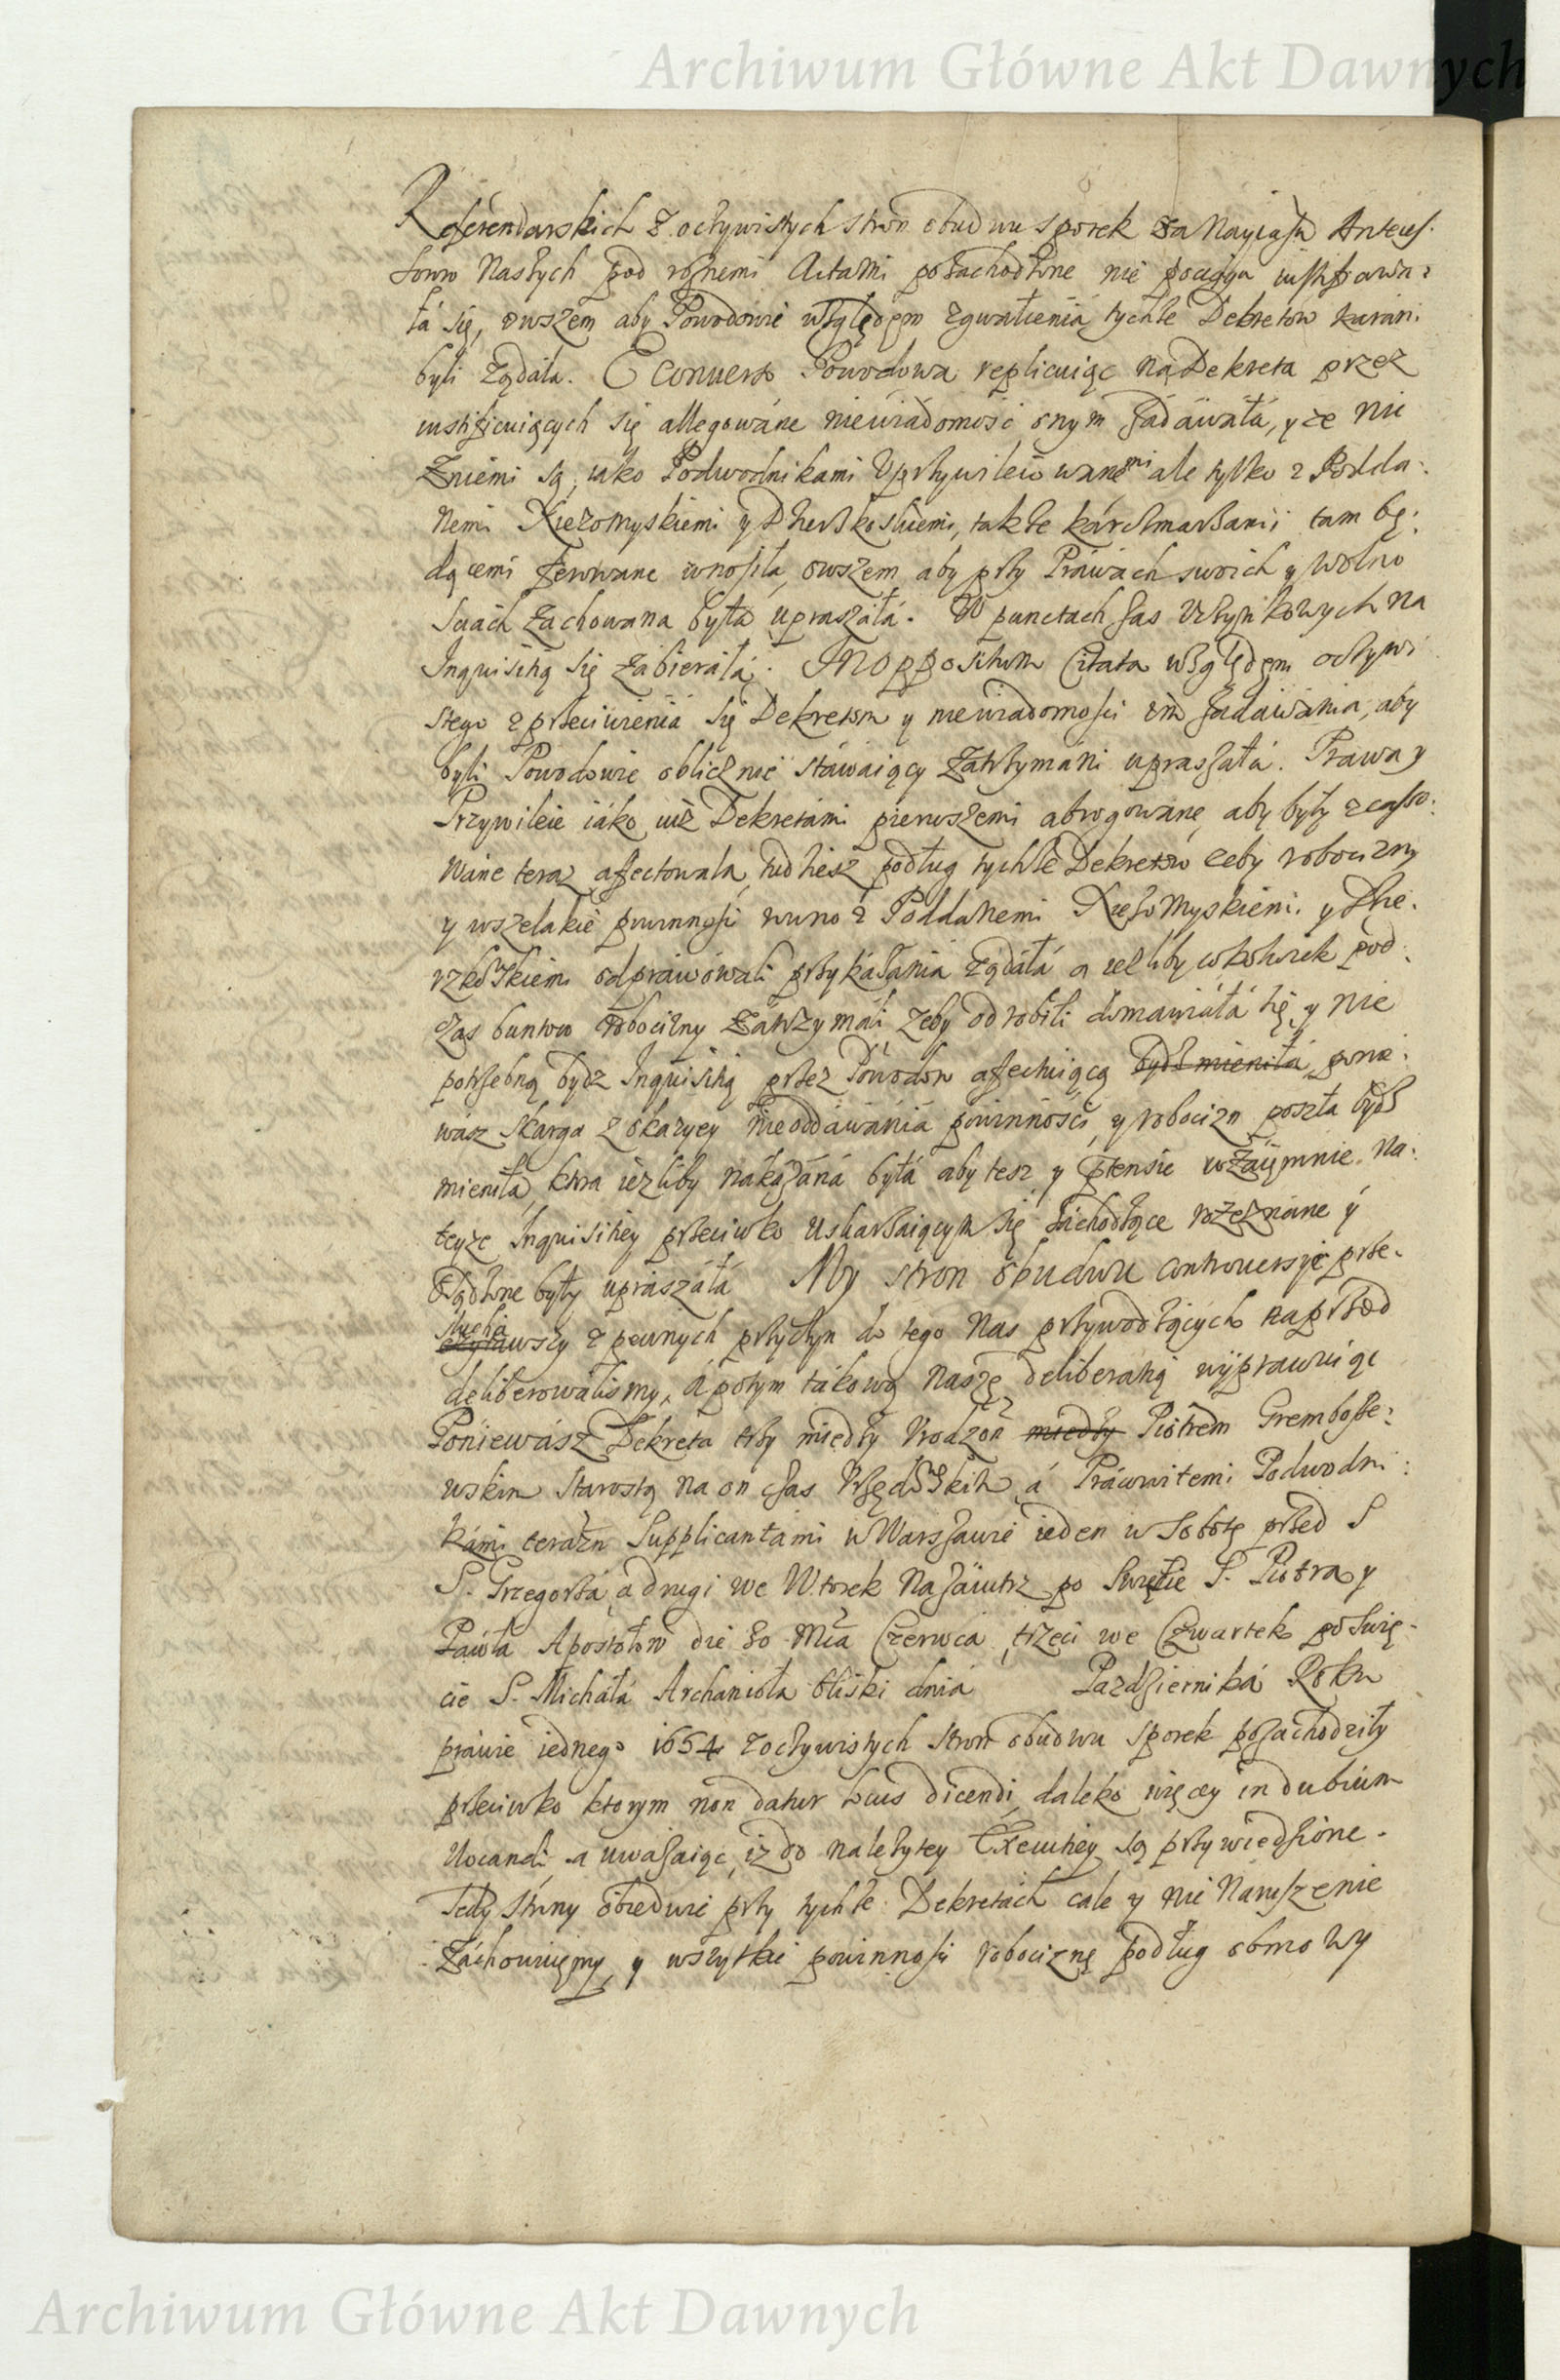 Archiwum Główne Akt Dawnych
Referendarskich z oczywistych stron obudwu sporek za Nayiasn Antecess.
sorow Naszych pod roznemi Actami pozachodzone nie pociąga iustifikowa:
ła się, owszem aby Powodowie względęm zgwałcenia tychze Dekretow karani
byli ządała. E conuerso Powodowa replicuiąc na Dekreta przez
iustificuiących się allegowáne niewiádomość onym zadáwáłá, y ze nie
zniemi są, iako Podwodnikami Vprzywileiowanemi ale tylko z Podda:
nemi Kiezomyskiemi y Dherzkoskiemi, także kárczmarzami tam bę:
dącemi ferowane wnosiła, owszem aby przy Práwách swoich y wolno
sciach záchowana była upraszáłá. W punctach zas Vczynkowych na
Inquisitią się zábieráłá. In oppositum Citata względęm oczywi
stego zprzeciwienia się Dekretom y niewiadomosci im zadawánia, aby
byli Powodowie oblicznie stáwaiący zatrzymáni upraszáłá. Prawa y
Przywileie iáko iuż Dekretámi pierwszemi abrogowáne, aby były zcasso:
wáne teraz affectowala, tudziesz podług tychże Dekretow zeby robocizny
y wszelakie powinnosci rowno z Poddanemi Kiezomyskiemi y Dhe:
rzkoskiemi odpráwowali przykázánia ządáłá a iezliby cokolwiek pod
czas buntow robocizny zátrzymáli, zeby odrobili domawiáłá się, y nie
potrzebną bydz Inquisitią przez Powodow affectuiącą bydz mieniłá, ponie:
wasz skarga z okazyey nieoddáwánia powinnosci, y robocizn poszła bydz
mieniła, ktora iezliby nákazáná byłá aby tesz y ptensie wzáięmnie na:
teyze Inquisitiey przeciwko uskarzaiącym się záchodzące wzęznáne y
osądzone były upraszáłá My stron obudwu controuersye prze:
słucha
czytawszy z pewnych przyczyn do tego Nas przywodzących naprzod
deliberowálismy, á potym tákową naszę deliberatią wyprawuiąc
Poniewász Dekreta trzy między Vrodzon między Piotrem Grembosze:
wskim Starostą na on czas Vrzędowskim á Prácowitemi Podwodni:
kámi terázn Supplicantámi w Warszawie ieden w Sobotę przed S
S. Grzegorzá, a drugi we Wtorek názáiutrz po Swięcie S. Piotra y
Páwłá Apostołow die 30 Mca Czerwca, trzeci we Czwartek po Swię-
cie S. Michałá Archanioła bliski dniá Pazdziernika Roku
práwie iednego 1654 z oczywistych stron obudwu sporek pozachodziły
przeciwko ktorym non datur locus dicendi, daleko więcey in dubium
uocandi, a uwázáiąc, iz do nalezytey Exewtiey są przywiedzione.
Tedy strony obiedwie przy tychże Dekretách cale y nie Naruszenie
Záchowuięmy, y wszytkie powinnosci robociznę podług obmowy
Archiwum Główne Akt Dawnych